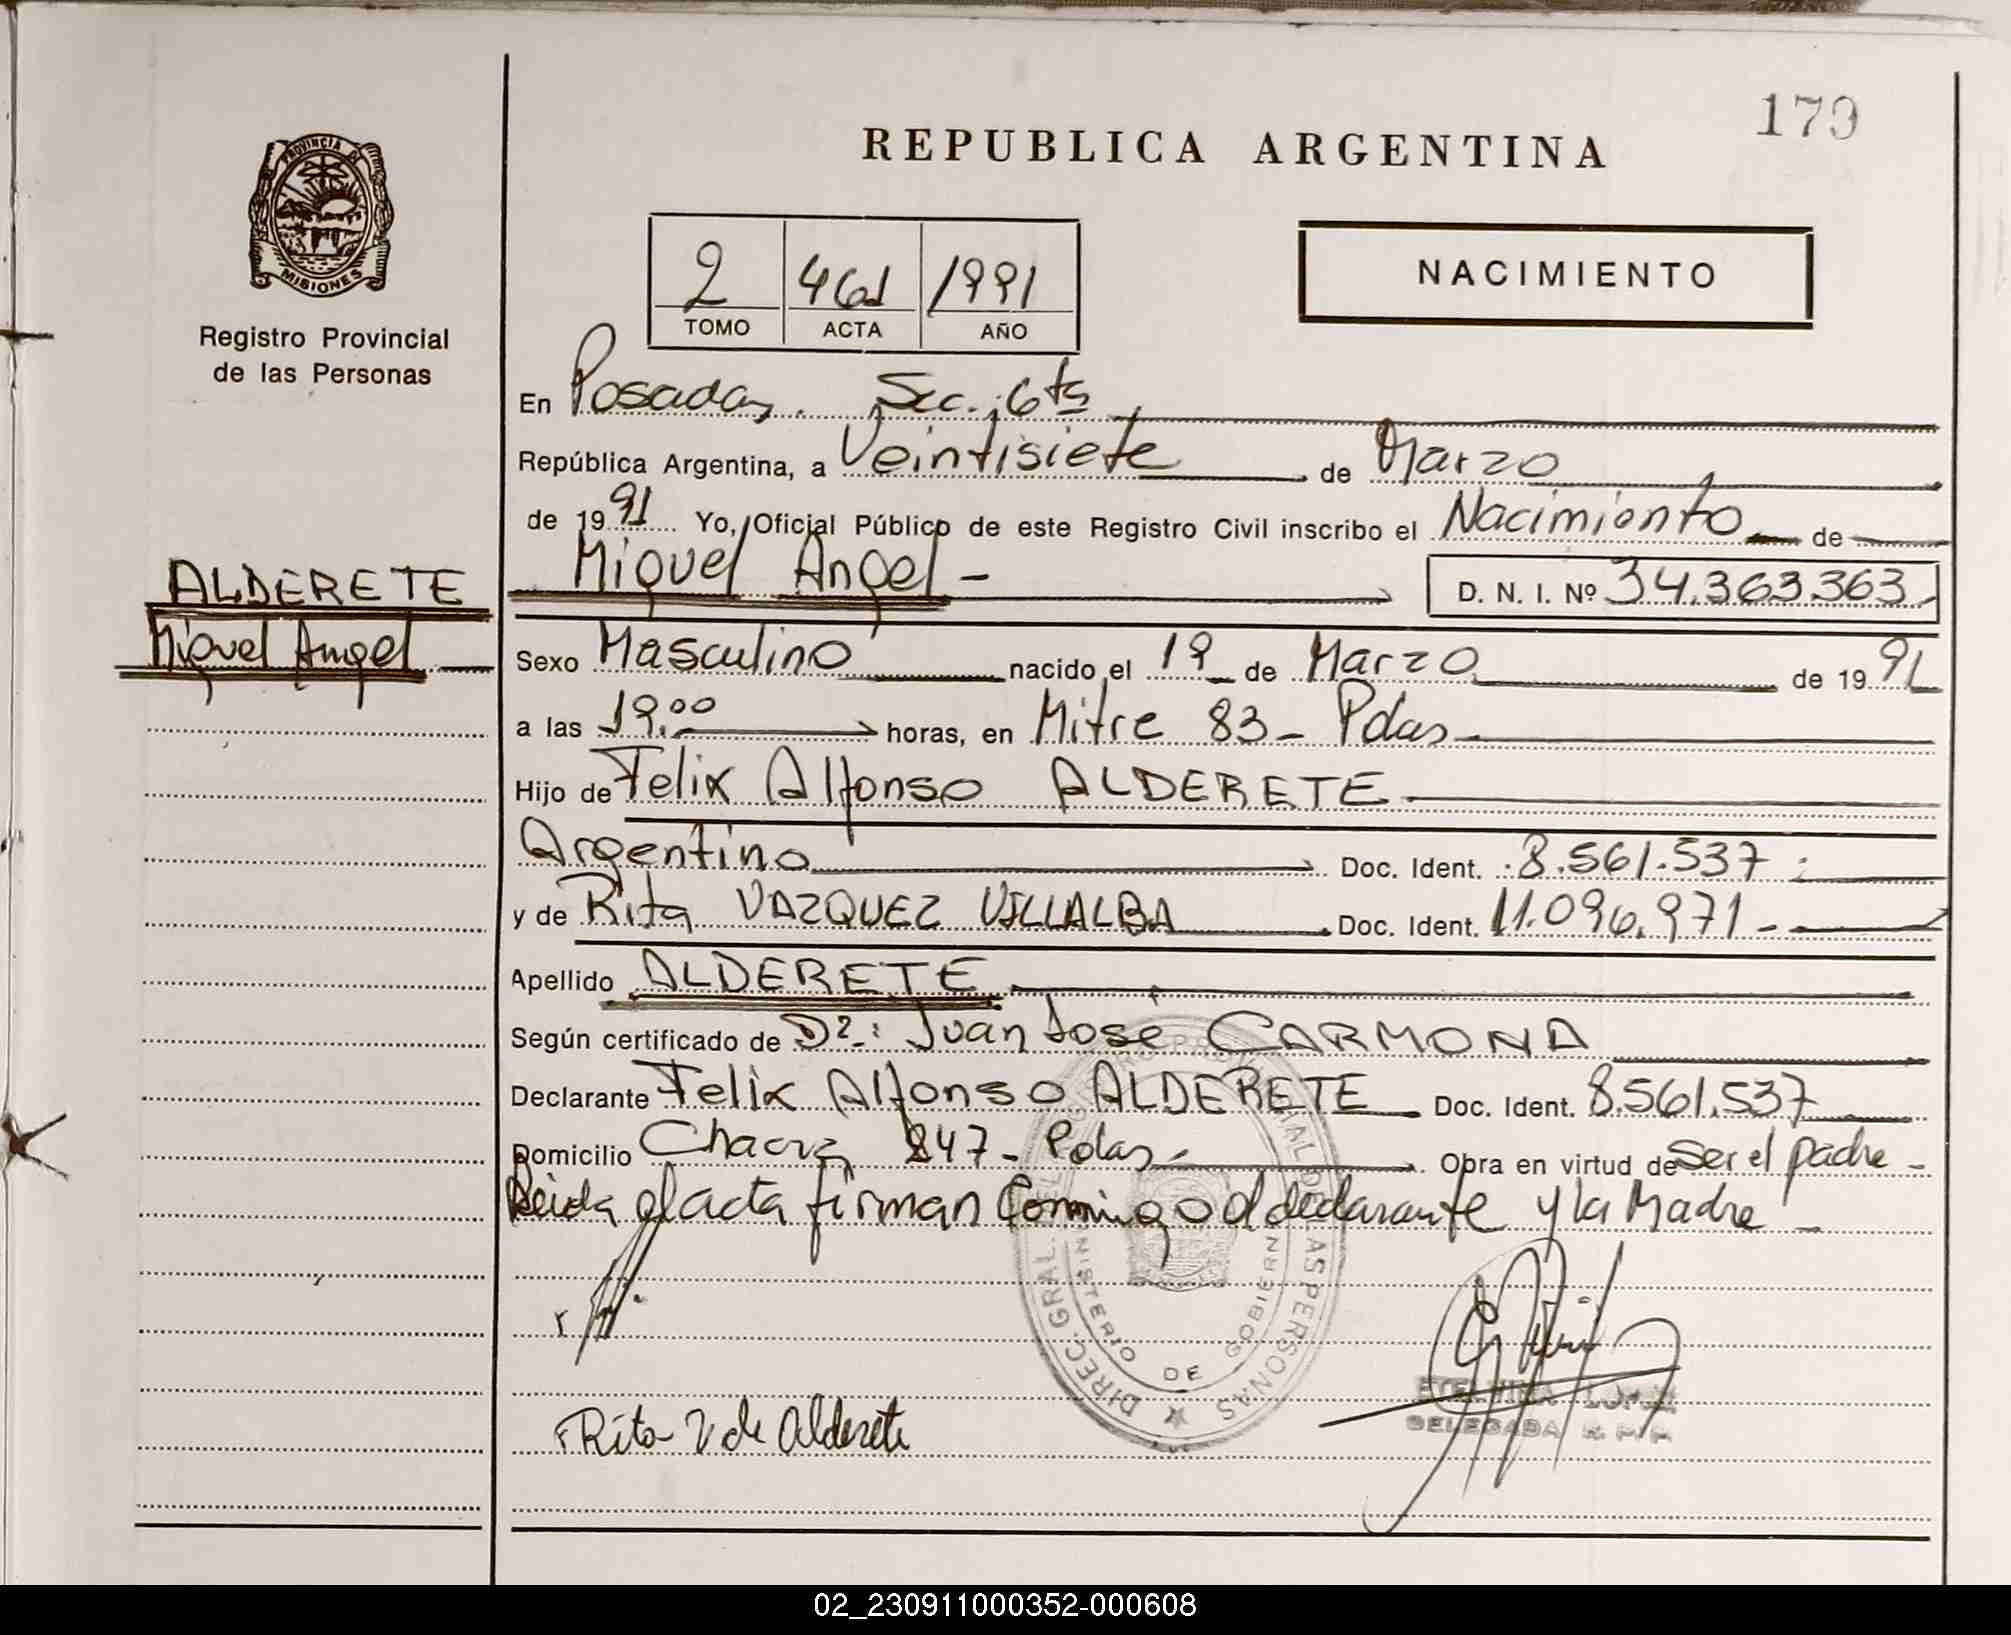 179
REPUBLICA ARGENTINA
PROVINCIA DE
MISIONES
Registro Provincial
de las Personas
2 461 1991
TOMO ACTA AÑO
NACIMIENTO
En Posadas. Sec. 6ta
República Argentina, a Veintisiete de Marzo
de 1991 Yo, Oficial Público de este Registro Civil inscribo el Nacimiento de
Miguel Angel - D. N. I. Nº 34.363.363
ALDERETE
Miguel Angel
Sexo Masculino nacido el 19 de Marzo de 1991
a las 19.00 horas, en Mitre 83 - Pdas
Hijo de Felix Alfonso ALDERETE
Argentino Doc. Ident. 8.561.537
y de Rita VAZQUEZ VILLALBA Doc. Ident. 11.096.971 -
Apellido ALDERETE
Según certificado de Dr.: Juan Jose CARMONA
Declarante Felix Alfonso ALDERETE Doc. Ident. 8.561.537
Domicilio Chacra 247 - Pdas - Obra en virtud de Ser el padre -
Leida el acta firman Conmigo el declarante y la Madre -
DIREC. GRAL. PERSONAS
MINISTERIO DE GOBIERNO
Rita V de Alderete
DELEGADA
02_230911000352-000608